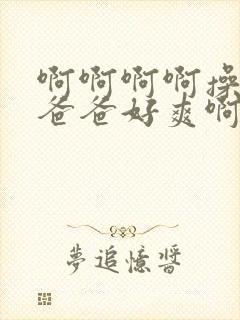 啊啊啊啊操
爸爸好爽啊
夢追憶醬